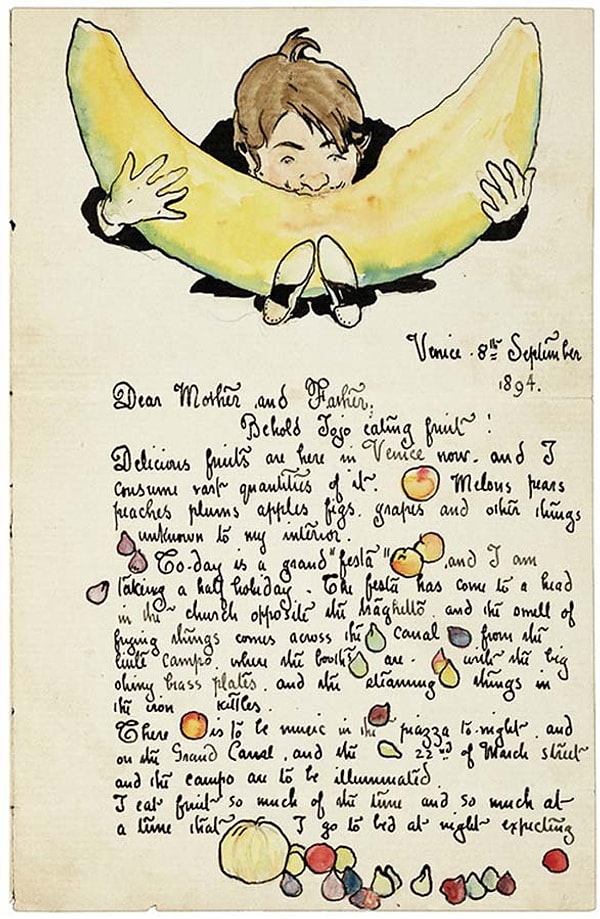 Venice. 8th September
1894.
Dear Mother and Father,
Behold Jojo eating fruit!
Delicious fruits are here in Venice now. and I
consume vast quantities of it. Melons pears
peaches plums apples figs. grapes and other things
unknown to my interior.
To-day is a grand "festa" and I am
taking a half holiday. The festa has come to a head
in the church opposite the traghetto. and the smell of
frying things comes across the canal from the
little campo. where the booths are. with the big
shiny brass plates. and the steaming things in
the iron kettles.
There is to be music in the piazza to-night. and
on the Grand Canal. and the 22nd of March street
and the campo are to be illuminated.
I eat fruit so much of the time and so much at
a time that I go to bed at night expecting